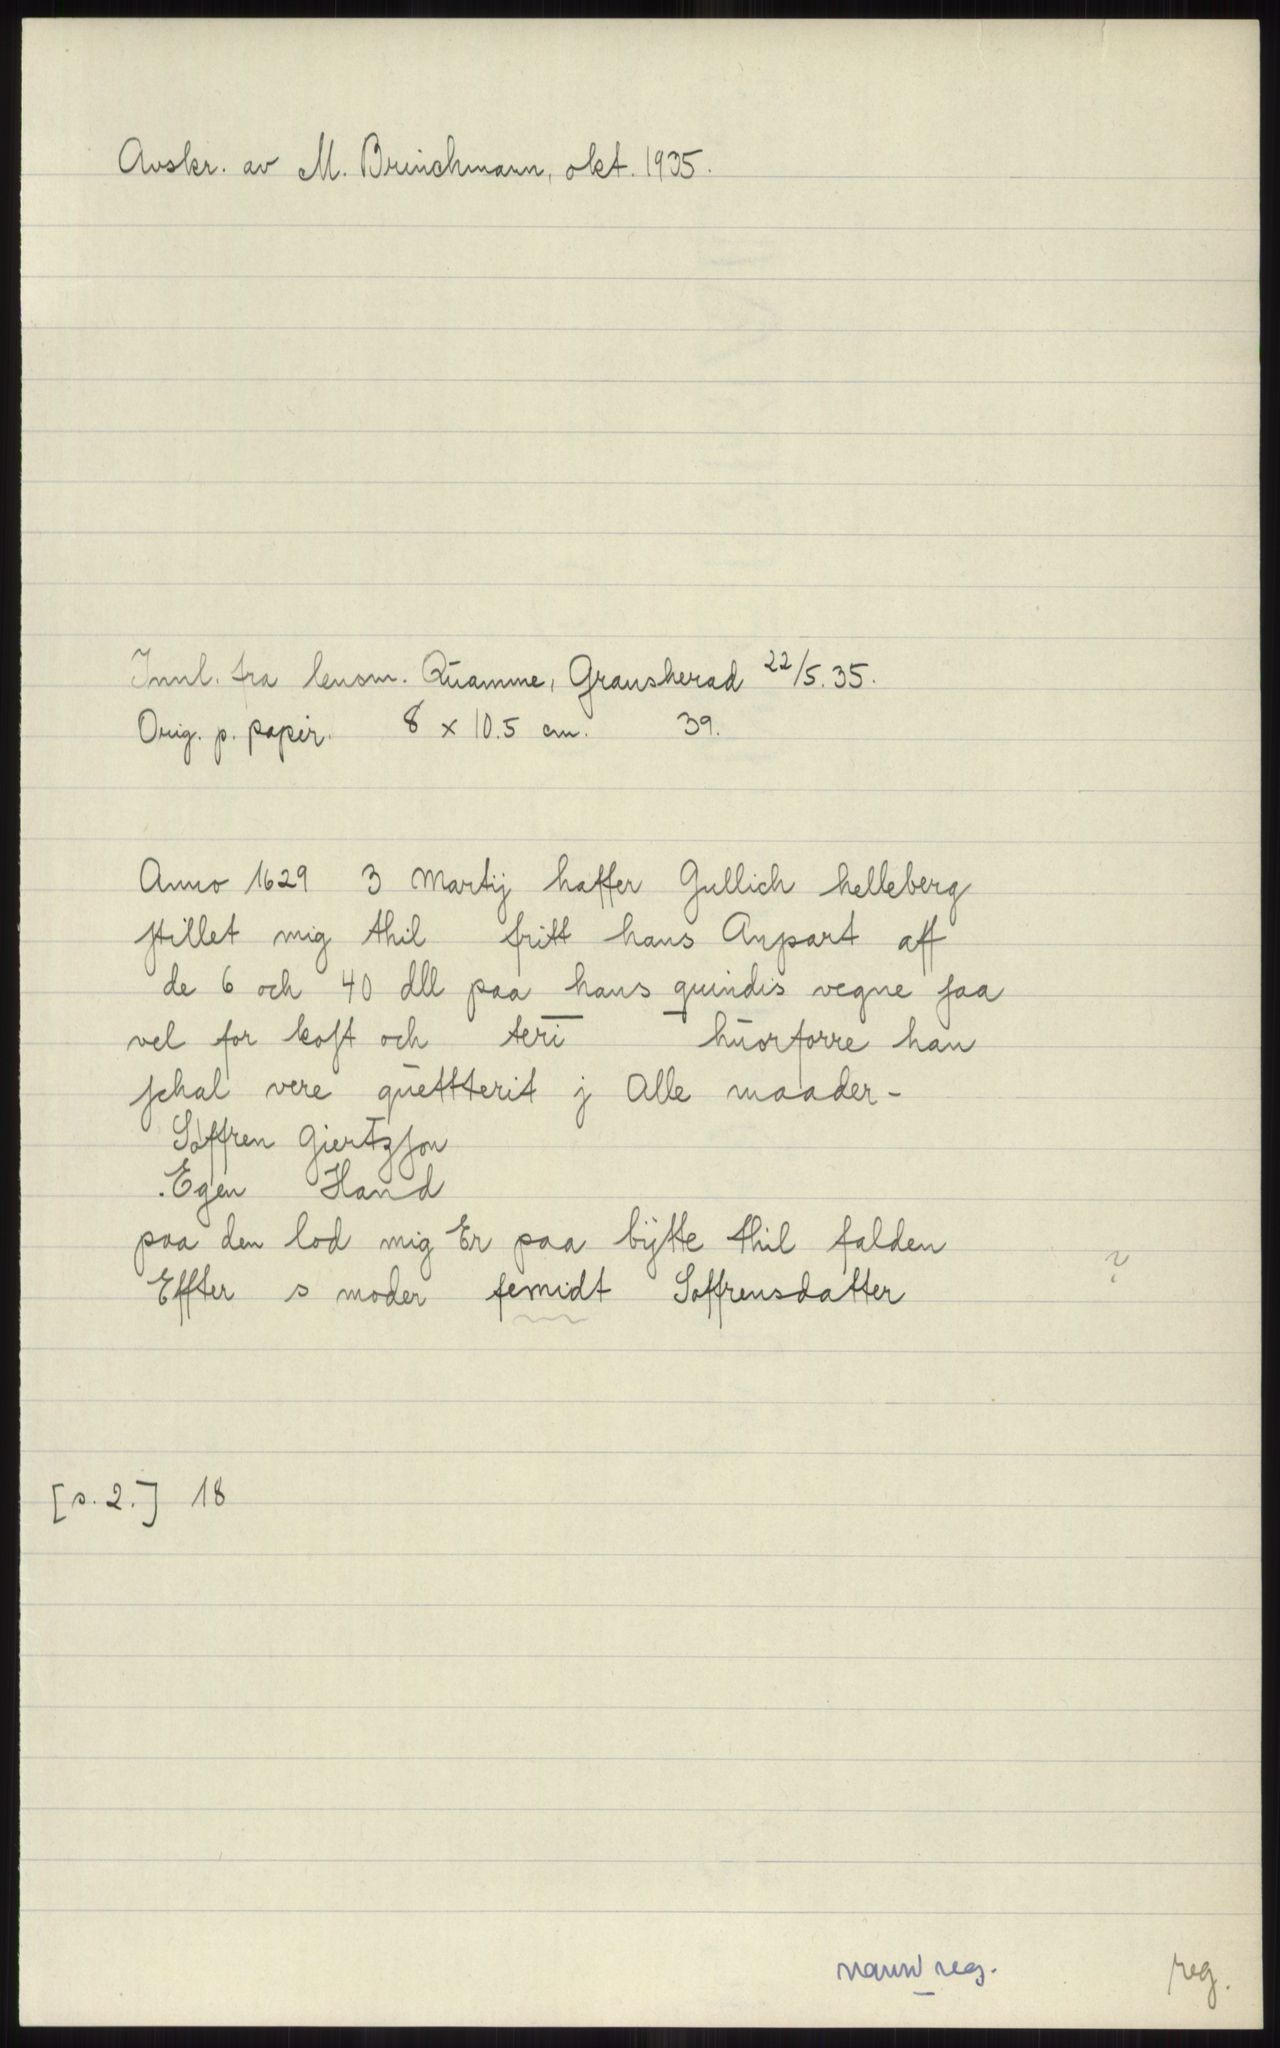 Avskr. av M. Brinchmann, okt. 1935.
Innl. fra lensm. Quamme, Gransherad 22/5.35.
Orig. p. papir. 8 x 10.5 cm. 39.
Anno 1629 3 Martij haffer Gullich helleberg
stillet mig thil fritt hans Anpart aff
de 6 och 40 dll paa hans quindis vegne saa
vel for kost och teri huorforre han
schal vere quettterit j Alle maader-
Soffren Giertzson
. Egen Hand
paa den lod mig Er paa bÿtte thil falden
Effter s moder femidt Soffrensdatter ?
[s. 2.] 18
navnreg. reg.